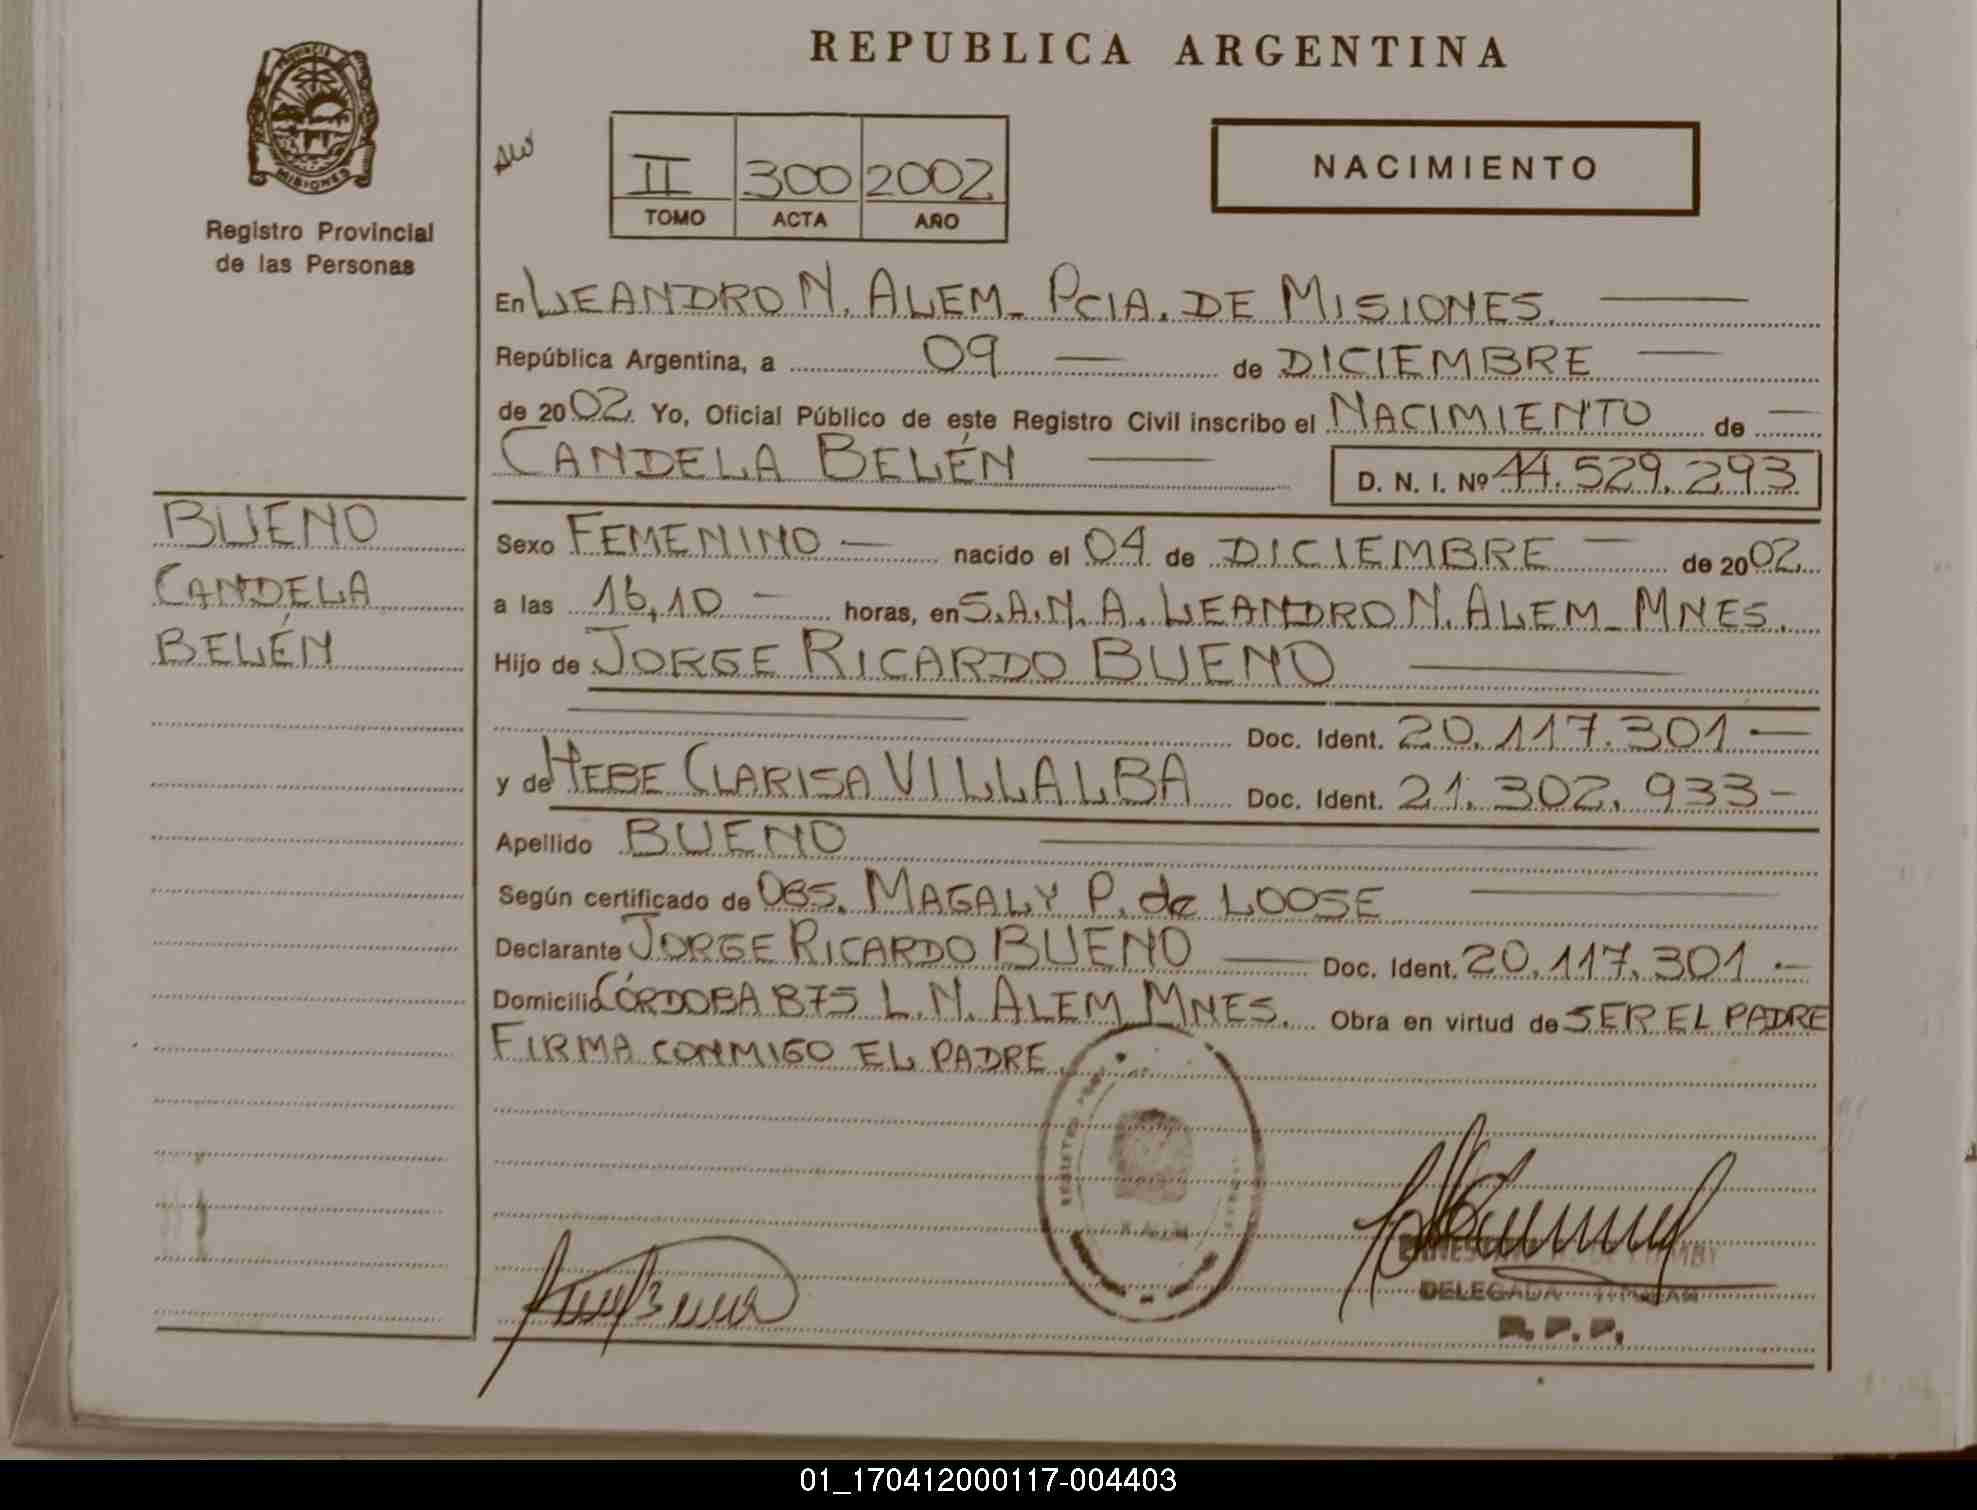 REPUBLICA ARGENTINA
PROVINCIA DE
MISIONES
Registro Provincial
de las Personas
II 300 2002
TOMO ACTA AÑO
NACIMIENTO
En LEANDRO N. ALEM_ PCIA. DE MISIONES.
República Argentina, a 09 de DICIEMBRE
de 2002. Yo, Oficial Público de este Registro Civil inscribo el NACIMIENTO de
CANDELA BELÉN D. N. I. Nº 44.529.293
BUENO
CANDELA
BELÉN
Sexo FEMENINO nacido el 04 de DICIEMBRE de 2002
a las 16,10 horas, en S.A.M.A. LEANDRO N. ALEM_ MNES.
Hijo de JORGE RICARDO BUENO
Doc. Ident. 20.117.301
y de HEBE CLARISA VILLALBA Doc. Ident. 21.302.933
Apellido BUENO
Según certificado de OBS. MAGALY P. de LOOSE
Declarante JORGE RICARDO BUENO Doc. Ident. 20.117.301
Domicilio CÓRDOBA 875 L.N. ALEM MNES. Obra en virtud de SER EL PADRE
FIRMA CONMIGO EL PADRE.
DELEGADA TITULAR
R. P. P.
01_170412000117-004403